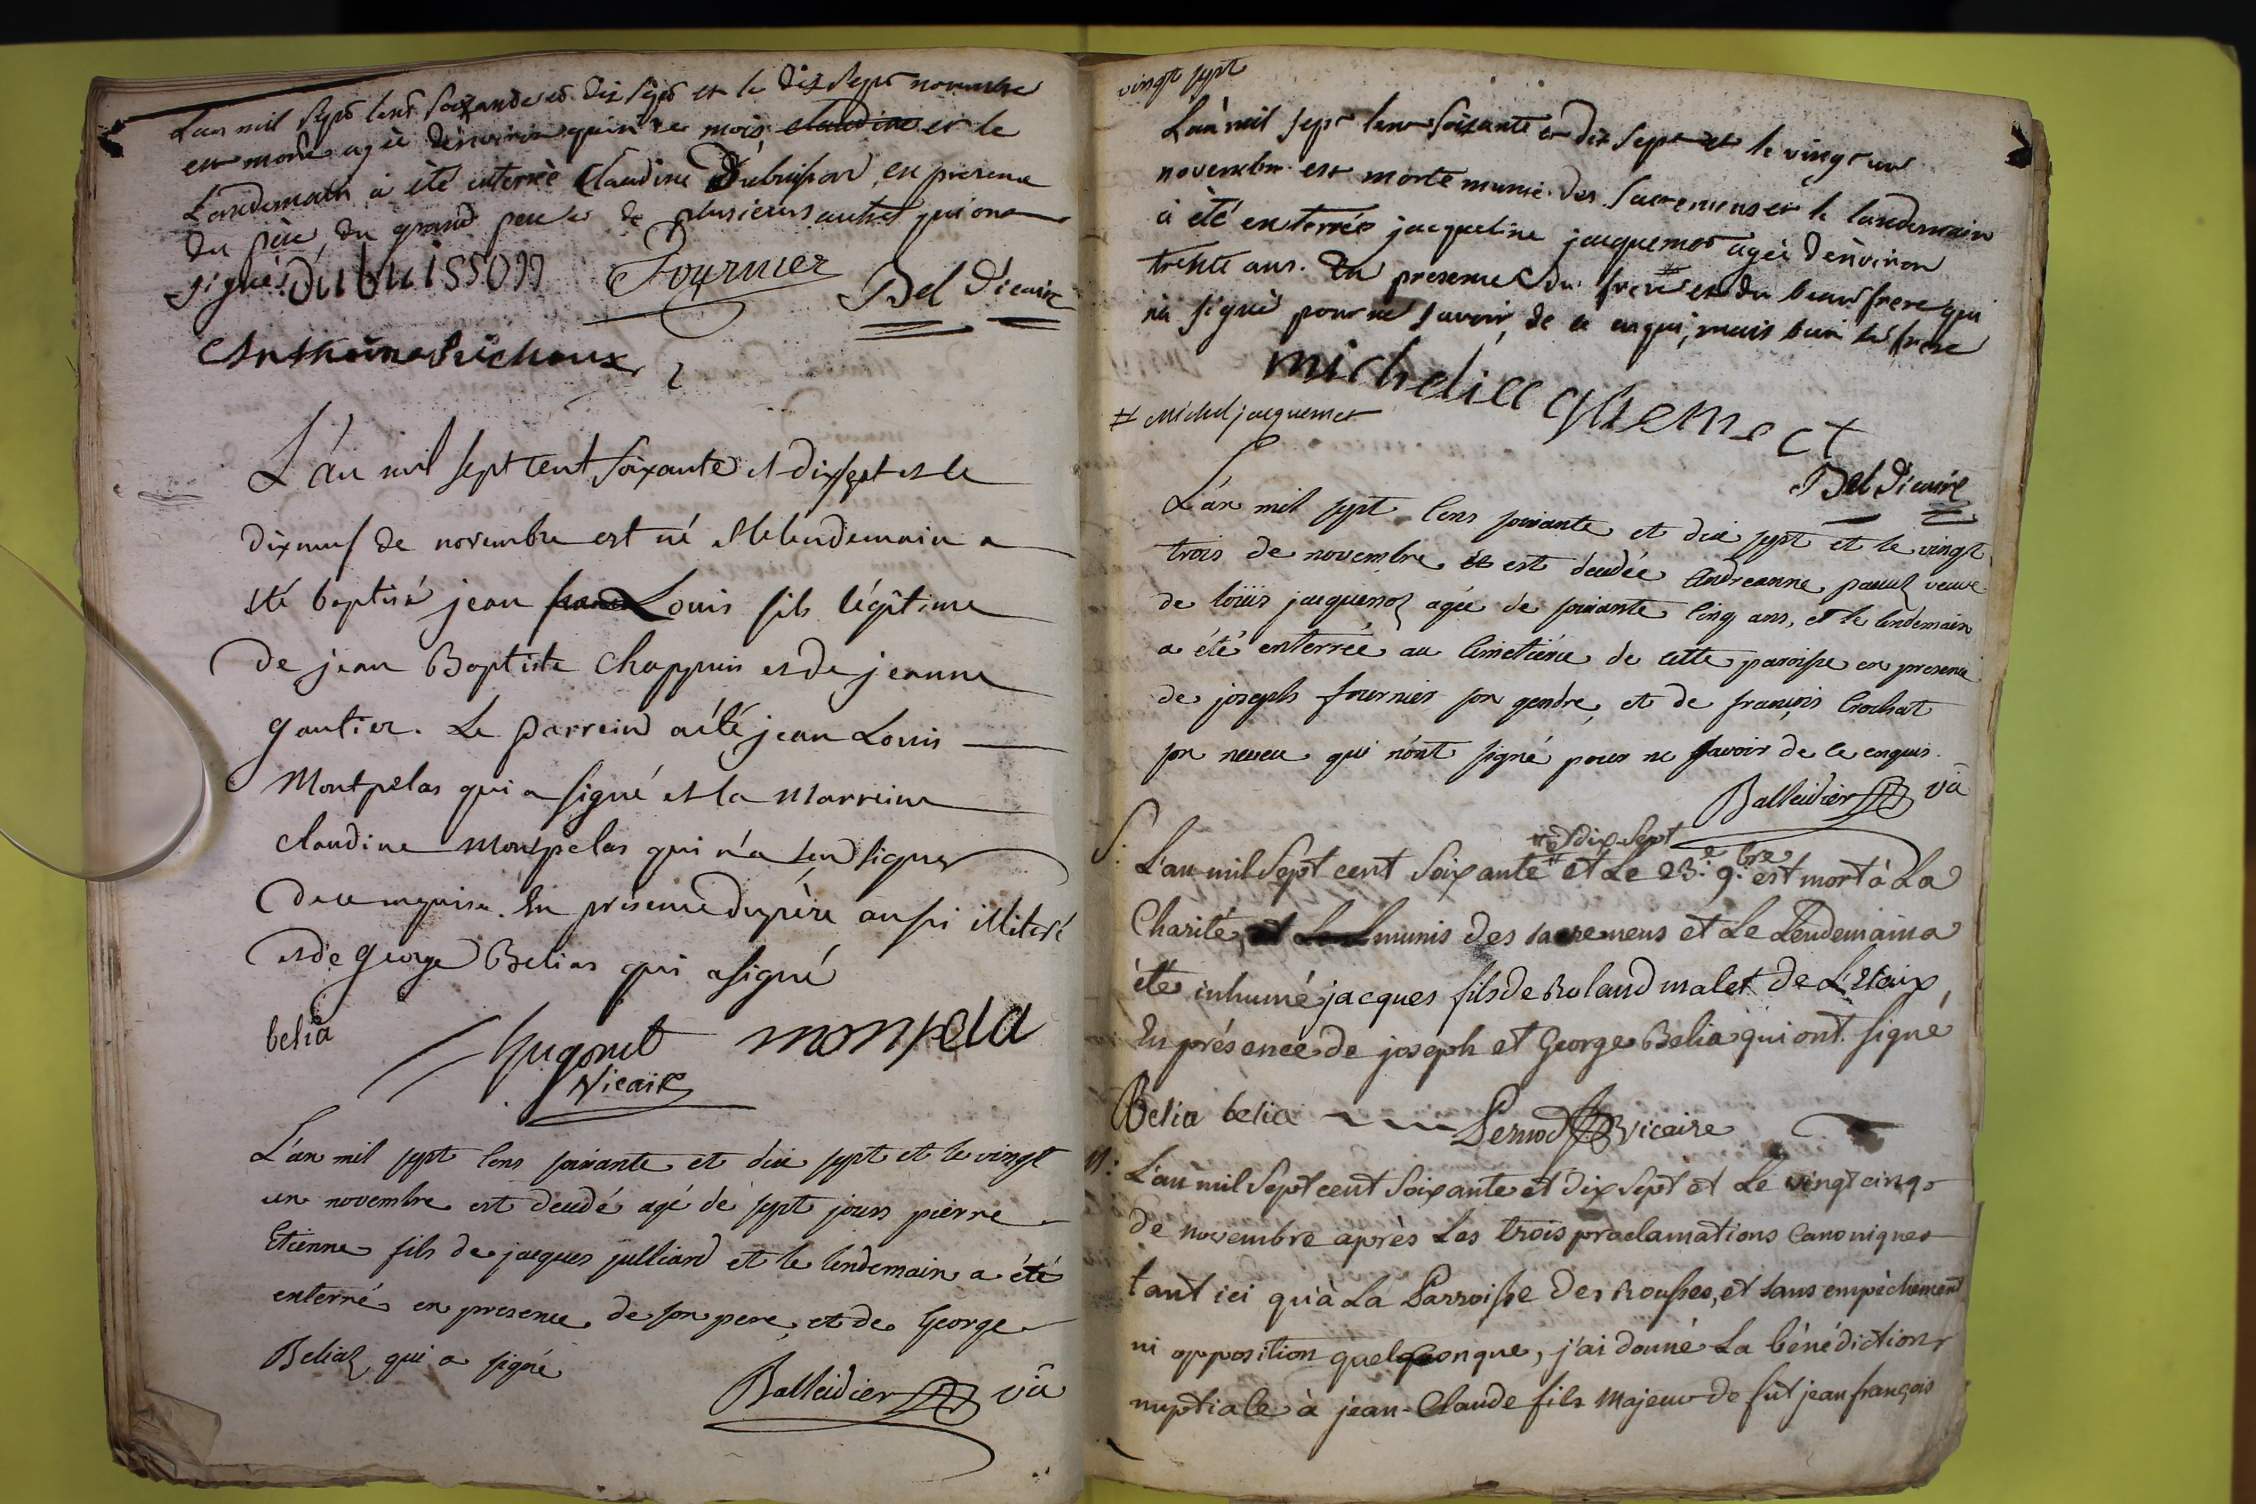 L'an mil sept cent soixande et dix sept et le dix sept novembre
est morte agée d'environ quinze mois claudine et le
landemain a été enterrée Claudine Dubuisson en presence
du père, du grand pere et de plusieurs autres qui ont
signés dubuisson Fournier Bel Vicaire
Anthoine Michoux
L'an mil sept cent soixante et dixsept et le
dixneuf de novembre est né et le lendemain a
été baptisé jean Louis fils légitime
de jean Baptiste Chappuis et de jeanne
gautier. Le parrein a été jean Louis
Montpelas qui a signé et la Marreine
claudine Montpelas qui n'a seu signer
de ce enquise. En présence du père aussi illiteré
et de George Belias qui a signé
belia Hugonet monpela
Vicaire
L'an mil sept cens soixante et dix sept et le vingt
un novembre est decedé agé de sept jours pierre
Etienne fils de jacques julliard et le lendemain a été
enterré en presence de son pere, et de George
Beliaz qui a signé
Balleidier vic
vingt sept
L'an mil sept cent soixante et dix sept et le vingt un
novembre est morte munie des sacremens et le landemain
a été enterrée jacqueline jacquemet agée d'environ
trente ans. En presence du frere # et du beau frere qui
n'a signé pour ne savoir de ce enqui, mais bien le frere
micheliacquemect
# Michel jacquemet
Bel Vicaire
L'an mil sept cens soixante et dix sept et le vingt
trois de novembre est decedée Andreanne veuve
de loüis jacquenoz agée de soixante cinq ans, et le lendemain
a été enterrée au cimetiere de cette paroisse en presence
de joseph fournier son gendre, et de françois Crochat
son neveu qui n'ont signé pour ne savoir de ce enquis.
Balleidier vic
S: # et dix-sept
L'an mil sept cent soixante # et Le 23.e 9.bre est mort à La
Charité, munis des sacremens et Le Lendemain a
été inhumé jacques fils de Roland malet de L'Etaix,
En présence de joseph et George Belia qui ont signé
Belia belia Pernod Vicaire
M: L'an mil sept cent soixante et dix sept et Le vingt cinq
de novembre après Les trois proclamations Canoniques
tant ici qu'à La Parroisse Des Rousses, et sans empèchement
ni opposition quelquonque, j'ai donné La bénédiction
nuptiale à jean-Claude fils Majeur de fût jean françois